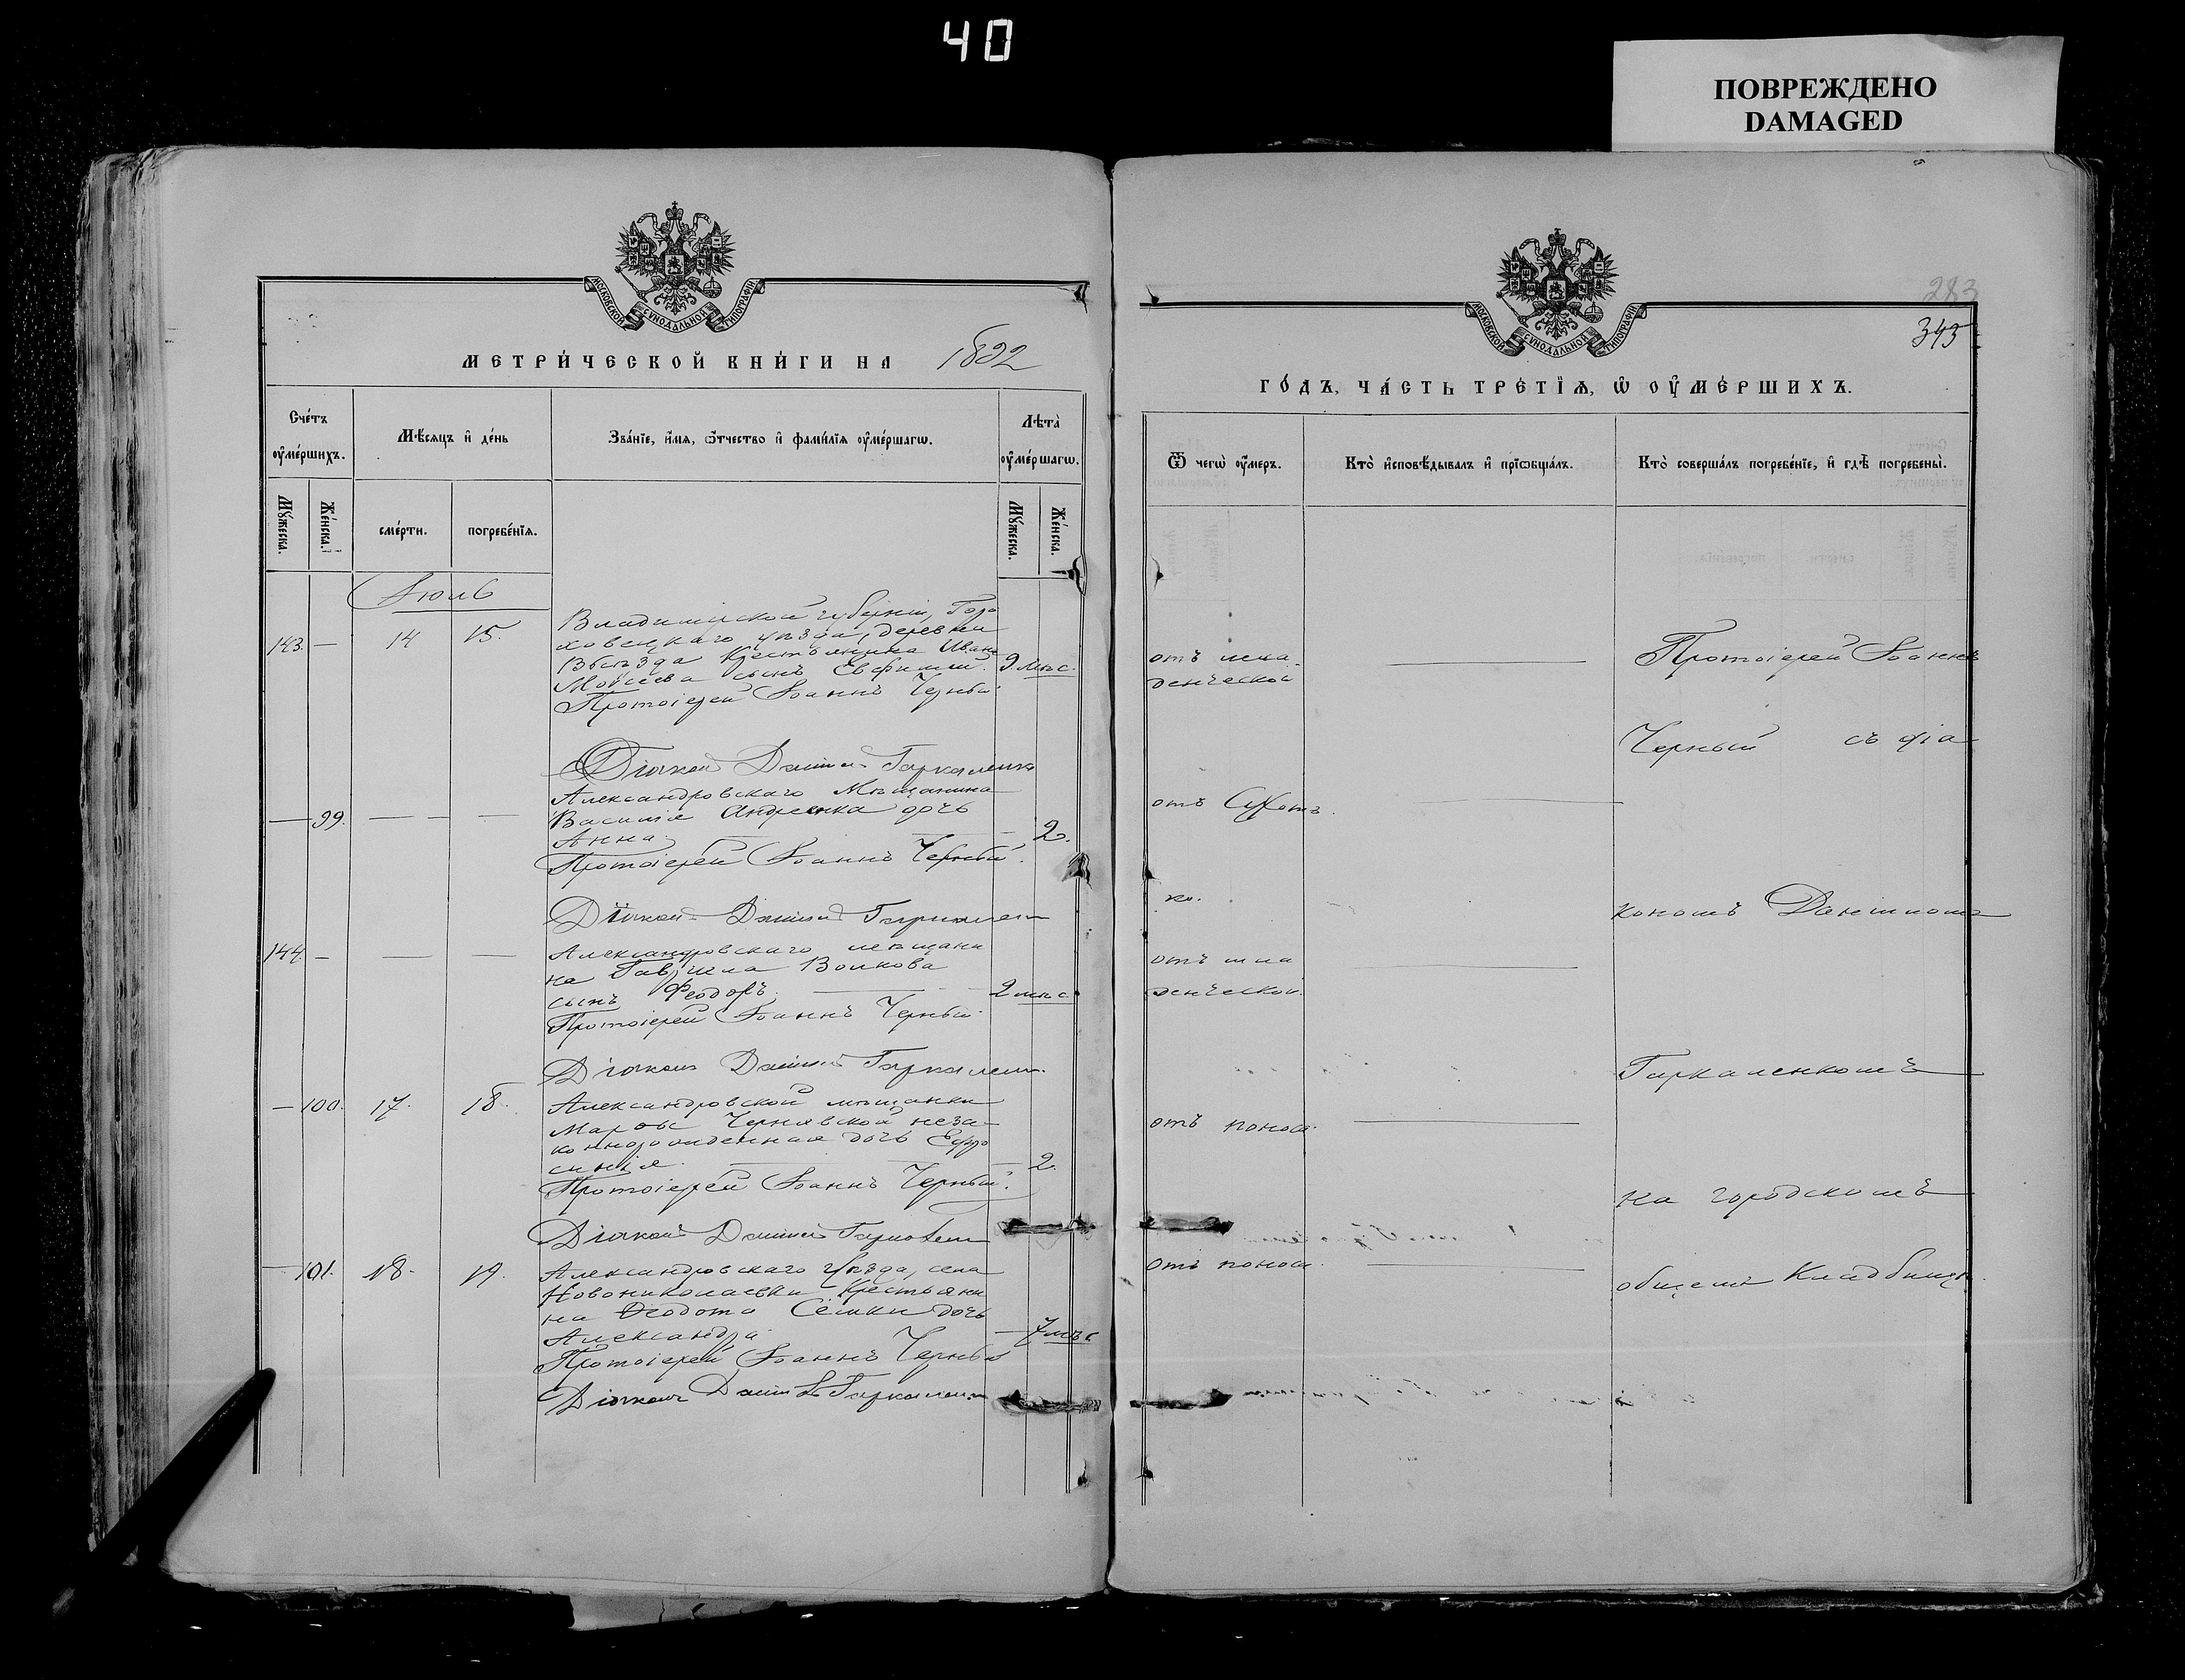 40
ПОВРЕЖДЕНО
DAMAGED
МОСКОВСКОЙ СѴНОДАЛЬНОЙ ТИПОГРАФІИ
МЕТРИ́ЧЕСКОЙ КНИ́ГИ НА 1892
Сче́тъ ᲂу҆ме́ршихъ.
Мѣ́сяцъ и҆ де́нь
Зва́нїе, и҆́мя, ѻ҆́тчество и҆ фами́лїя ᲂу҆ме́ршагѡ.
Лѣта̀ ᲂу҆ме́ршагѡ.
Мꙋ́жеска.
Же́нска.
сме́рти.
погребе́нїя.
Мꙋ́жеска.
Же́нска.
Іюль
143. — 14 15.
Владимірской губерніи, Горо
ховецкаго уѣзда, деревни
Выѣзда Крестьянина Ивана
Моѵсеева сынъ Евфимій. 9 мѣс.
Протоіерей Іоаннъ Черный
Діаконъ Даніилъ Гаркаленко
— 99. — — —
Александровскаго Мѣщанина
Василія Андреенка дочь
Анна — 2.
Протоіерей Іоаннъ Черный.
Діаконъ Даніилъ Гаркаленко
144. — — —
Александровскаго мѣщани
на Гавріила Волкова
сынъ Феодоръ. 2 мѣс.
Протоіерей Іоаннъ Черный.
Діаконъ Даніилъ Гаркаленко
— 100. 17. 18.
Александровской мѣщанки
Марѳы Чернявской неза-
коннорожденная дочь Евфро
синія. — 2.
Протоіерей Іоаннъ Черный.
Діаконъ Даніилъ Гаркаленко
— 101. 18. 19.
Александровскаго уѣзда, села
Новониколаевки Крестьяни
на Ѳеодота Сёмки дочь
Александра — 7 мѣс
Протоіерей Іоаннъ Черный
Діаконъ Даніилъ Гаркаленко
МОСКОВСКОЙ СѴНОДАЛЬНОЙ ТИПОГРАФІИ
283
345
ГО́ДЪ, ЧА́СТЬ ТРЕ́ТЇѦ, Ѡ҆ ОУ҆МЕ́РШИХЪ.
Ѿ чегѡ̀ ᲂу҆́меръ.
Кто̀ и҆сповѣ́дывалъ и҆ прїѡбща́лъ.
Кто̀ соверша́лъ погребе́нїе, и҆ гдѣ̀ погребены̀.
отъ мла-
денческой
Протоіерей Іоаннъ
Черный съ діа
отъ Сухотъ.
ко.
кономъ Даніиломъ
отъ мла
денческой.
Гаркаленкомъ
отъ поноса.
на городскомъ
отъ поноса.
общемъ Кладбищѣ.